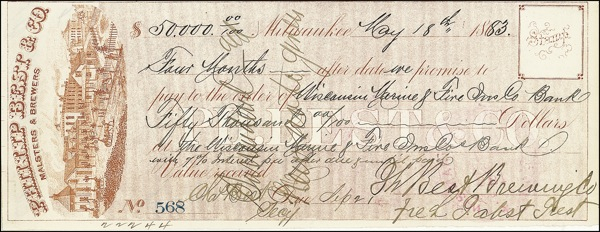 PHILLIP BEST & CO.
MALTSTERS & BREWERS
$ 50,000.00/100 Milwaukee May 18th 1883.
Four Months after date we promise to
pay to the order of Wisconsin Marine & Fire Ins Co Bank
Fifty Thousand 00/100 Dollars
at The Wisconsin Marine & Fire Ins Co Bank
with 7% Interest after due until paid
Value received
Due Sep 21
Secy
Ph Best Brewing Co
Fred Pabst Prest
No 568
22244